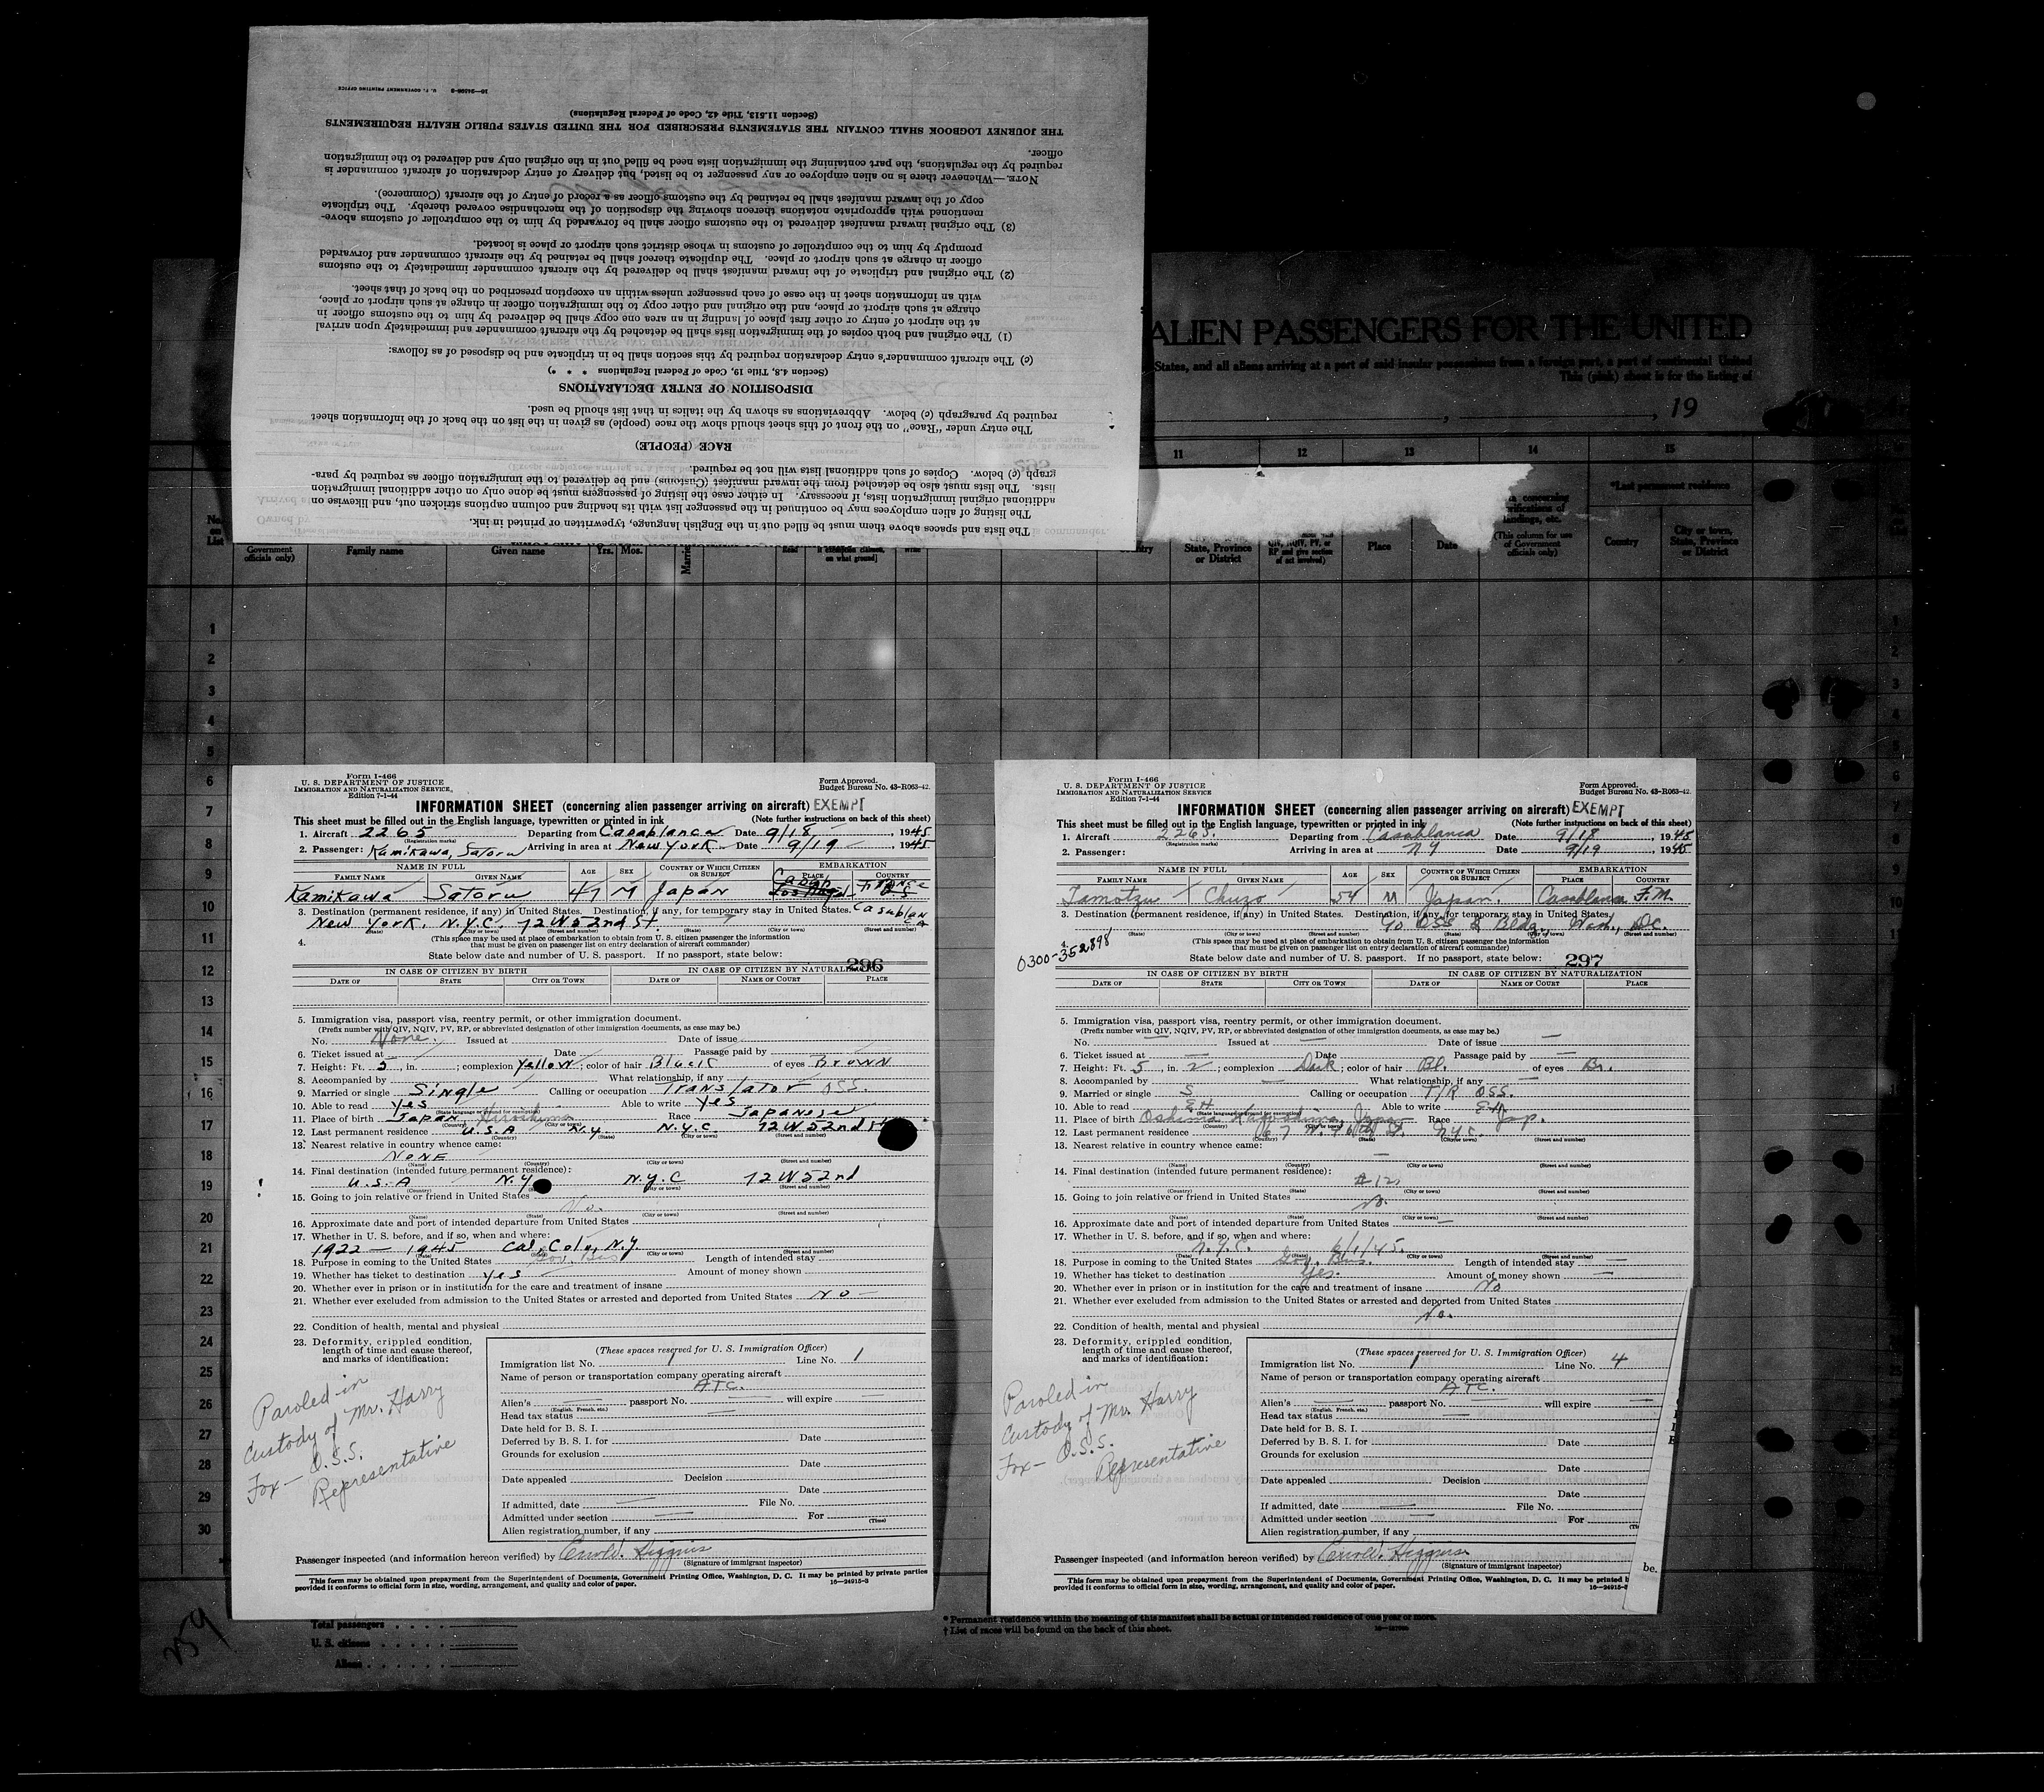 The lists and spaces above them must be filled out in the English language, typewritten or printed in ink.
The listing of alien employees may be continued in the passenger list with its heading and column captions stricken out, and likewise on
additional original immigration lists, if necessary. In either case the listing of passengers must be done only on other additional immigration
lists. The lists must also be detached from the inward manifest (Customs) and be delivered to the immigration officer as required by para-
graph (c) below. Copies of such additional lists will not be required.
RACE (PEOPLE)
The entry under "Race" on the front of this sheet should show the race (people) as given in the list on the back of the information sheet
required by paragraph (c) below. Abbreviations as shown by the italics in that list should be used.
DISPOSITION OF ENTRY DECLARATIONS
(Section 4.8, Title 19, Code of Federal Regulations * * *)
(c) The aircraft commander's entry declaration required by this section shall be in triplicate and be disposed of as follows:
(1) The original and both copies of the immigration lists shall be detached by the aircraft commander and immediately upon arrival
at the airport of entry or other first place of landing in an area one copy shall be delivered by him to the customs officer in
charge at such airport or place, and the original and other copy to the immigration officer in charge at such airport or place,
with an information sheet in the case of each passenger unless within an exception prescribed on the back of that sheet.
(2) The original and triplicate of the inward manifest shall be delivered by the aircraft commander immediately to the customs
officer in charge at such airport or place. The duplicate thereof shall be retained by the aircraft commander and forwarded
promptly by him to the comptroller of customs in whose district such airport or place is located.
(3) The original inward manifest delivered to the customs officer shall be forwarded by him to the comptroller of customs above-
mentioned with appropriate notations thereon showing the disposition of the merchandise covered thereby. The triplicate
copy of the inward manifest shall be retained by the customs officer as a record of entry of the aircraft (Commerce).
NOTE.—Whenever there is no alien employee or any passenger to be listed, but delivery of entry declaration of aircraft commander is
required by the regulations, the part containing the immigration lists need be filled out in the original only and delivered to the immigration
officer.
THE JOURNEY LOGBOOK SHALL CONTAIN THE STATEMENTS PRESCRIBED FOR THE UNITED STATES PUBLIC HEALTH REQUIREMENTS
(Section 11.513, Title 42, Code of Federal Regulations)
U. S. GOVERNMENT PRINTING OFFICE
ALIEN PASSENGERS FOR THE UNITED
States, and all aliens arriving at a port of said insular possessions from a foreign port, a port of continental United
This (pink) sheet is for the listing of
, 19
11 12 13 14 15
*Last permanent residence
No. on List
Government officials only)
Family name Given name Yrs. Mos.
State, Province or District
Place Date
(This column for use of Government officials only)
Country
City or town, State, Province or District
1
2
3
4
5
6
7
8
9
10
11
12
13
14
15
16
17
18
19
20
21
22
23
24
25
26
27
28
29
30
Form I-466
U. S. DEPARTMENT OF JUSTICE
IMMIGRATION AND NATURALIZATION SERVICE
Edition 7-1-44
Form Approved.
Budget Bureau No. 43-R063-42.
INFORMATION SHEET (concerning alien passenger arriving on aircraft) EXEMPT
This sheet must be filled out in the English language, typewritten or printed in ink (Note further instructions on back of this sheet)
1. Aircraft 2265 Departing from Casablanca Date 9/18, 1945
(Registration marks)
2. Passenger: Kamikawa, Satoru Arriving in area at New York Date 9/19, 1945
NAME IN FULL AGE SEX COUNTRY OF WHICH CITIZEN OR SUBJECT EMBARKATION
FAMILY NAME GIVEN NAME PLACE COUNTRY
Kamikawa Satoru 47 M Japan
3. Destination (permanent residence, if any) in United States. Destination, if any, for temporary stay in United States.
New York, N.Y.C. 72 W 52nd St.
(State) (City or town) (Street and number) (State) (City or town) (Street and number)
4. (This space may be used at place of embarkation to obtain from U. S. citizen passenger the information
that must be given on passenger list on entry declaration of aircraft commander)
State below date and number of U. S. passport. If no passport, state below:
296
IN CASE OF CITIZEN BY BIRTH IN CASE OF CITIZEN BY NATURALIZATION
DATE OF STATE CITY OR TOWN DATE OF NAME OF COURT PLACE
5. Immigration visa, passport visa, reentry permit, or other immigration document.
(Prefix number with QIV, NQIV, PV, RP, or abbreviated designation of other immigration documents, as case may be.)
No. None. Issued at Date of issue
6. Ticket issued at Date Passage paid by
7. Height: Ft. 5, in. ; complexion Yellow; color of hair Black of eyes Brown
8. Accompanied by What relationship, if any
9. Married or single Single Calling or occupation Translator OSS.
10. Able to read Yes Able to write Yes
(State language or ground for exemption)
11. Place of birth Japan Hiroshima Race Japanese
(Country) (City or town)
12. Last permanent residence U.S.A N.Y. N.Y.C. 72 W 52nd St
(Country) (State) (City or town) (Street and number)
13. Nearest relative in country whence came:
NONE
(Name) (Country) (City or town) (Street and number)
14. Final destination (intended future permanent residence):
U.S.A N.Y N.Y.C 72 W 52nd
(Country) (State) (City or town) (Street and number)
15. Going to join relative or friend in United States No.
(Name) (State) (City or town) (Street and number)
16. Approximate date and port of intended departure from United States
17. Whether in U. S. before, and if so, when and where:
1922 — 1945 Cal, Colo, N.Y.
(Date) (State) (City or town) (Street and number)
18. Purpose in coming to the United States Gov. Bus. Length of intended stay
19. Whether has ticket to destination Yes Amount of money shown
20. Whether ever in prison or in institution for the care and treatment of insane
21. Whether ever excluded from admission to the United States or arrested and deported from United States No —
22. Condition of health, mental and physical
23. Deformity, crippled condition,
length of time and cause thereof,
and marks of identification:
Paroled in
custody of Mr. Harry
Fox — O.S.S.
Representative
(These spaces reserved for U. S. Immigration Officer)
Immigration list No. 1 Line No. 1
Name of person or transportation company operating aircraft
ATC.
Alien's passport No. will expire
(English, French, etc.)
Head tax status
Date held for B. S. I.
Deferred by B. S. I. for Date
Grounds for exclusion
Date
Date appealed Decision
Date
If admitted, date File No.
Admitted under section For
(Time)
Alien registration number, if any
Passenger inspected (and information hereon verified) by Errol J. Higgins
(Signature of immigrant inspector)
This form may be obtained upon prepayment from the Superintendent of Documents, Government Printing Office, Washington, D. C. It may be printed by private parties
provided it conforms to official form in size, wording, arrangement, and quality and color of paper. 16—24915-3
Form I-466
U. S. DEPARTMENT OF JUSTICE
IMMIGRATION AND NATURALIZATION SERVICE
Edition 7-1-44
Form Approved.
Budget Bureau No. 43-R063-42.
INFORMATION SHEET (concerning alien passenger arriving on aircraft) EXEMPT
This sheet must be filled out in the English language, typewritten or printed in ink (Note further instructions on back of this sheet)
1. Aircraft 2265. Departing from Casablanca Date 9/18, 1945
(Registration marks)
2. Passenger: Arriving in area at NY Date 9/19, 1945
NAME IN FULL AGE SEX COUNTRY OF WHICH CITIZEN OR SUBJECT EMBARKATION
FAMILY NAME GIVEN NAME PLACE COUNTRY
Tamotzu Chuzo 54 M Japan. Casablanca F.M.
3. Destination (permanent residence, if any) in United States. Destination, if any, for temporary stay in United States.
OSS Bldg., Wash., D.C.
(State) (City or town) (Street and number) (State) (City or town) (Street and number)
0300-352898
4. (This space may be used at place of embarkation to obtain from U. S. citizen passenger the information
that must be given on passenger list on entry declaration of aircraft commander)
State below date and number of U. S. passport. If no passport, state below: 297
IN CASE OF CITIZEN BY BIRTH IN CASE OF CITIZEN BY NATURALIZATION
DATE OF STATE CITY OR TOWN DATE OF NAME OF COURT PLACE
5. Immigration visa, passport visa, reentry permit, or other immigration document.
(Prefix number with QIV, NQIV, PV, RP, or abbreviated designation of other immigration documents, as case may be.)
No. — Issued at — Date of issue —
6. Ticket issued at — Date Passage paid by —
7. Height: Ft. 5, in. 2; complexion Dark; color of hair Bl. of eyes Br.
8. Accompanied by — What relationship, if any —
9. Married or single S Calling or occupation T/R OSS.
10. Able to read Able to write
(State language or ground for exemption)
11. Place of birth Oshima Kagoshima, Japan Race Jap.
12. Last permanent residence N.Y.C.
(Country) (State) (City or town) (Street and number)
13. Nearest relative in country whence came:
—
(Name) (Country) (City or town) (Street and number)
14. Final destination (intended future permanent residence):
#12
(Country) (State) (City or town) (Street and number)
15. Going to join relative or friend in United States No.
(Name) (State) (City or town) (Street and number)
16. Approximate date and port of intended departure from United States —
17. Whether in U. S. before, and if so, when and where:
N.Y.C. 6/1/45.
(Date) (State) (City or town) (Street and number)
18. Purpose in coming to the United States Gov. Bus. Length of intended stay —
19. Whether has ticket to destination Yes. Amount of money shown —
20. Whether ever in prison or in institution for the care and treatment of insane No
21. Whether ever excluded from admission to the United States or arrested and deported from United States
No.
22. Condition of health, mental and physical
23. Deformity, crippled condition,
length of time and cause thereof,
and marks of identification:
Paroled in
Custody of Mr. Harry
Fox — O.S.S.
Representative
(These spaces reserved for U. S. Immigration Officer)
Immigration list No. 1 Line No. 4
Name of person or transportation company operating aircraft
ATC.
Alien's passport No. will expire
(English, French, etc.)
Head tax status
Date held for B. S. I.
Deferred by B. S. I. for Date
Grounds for exclusion
Date
Date appealed Decision
Date
If admitted, date File No.
Admitted under section For
Alien registration number, if any
Passenger inspected (and information hereon verified) by Errol J. Higgins
(Signature of immigrant inspector)
be.
This form may be obtained upon prepayment from the Superintendent of Documents, Government Printing Office, Washington, D. C. It may be printed
provided it conforms to official form in size, wording, arrangement, and quality and color of paper.
259
Total passengers
U. S. citizens
Aliens
* Permanent residence within the meaning of this manifest shall be actual or intended residence of one year or more.
† List of races will be found on the back of this sheet.